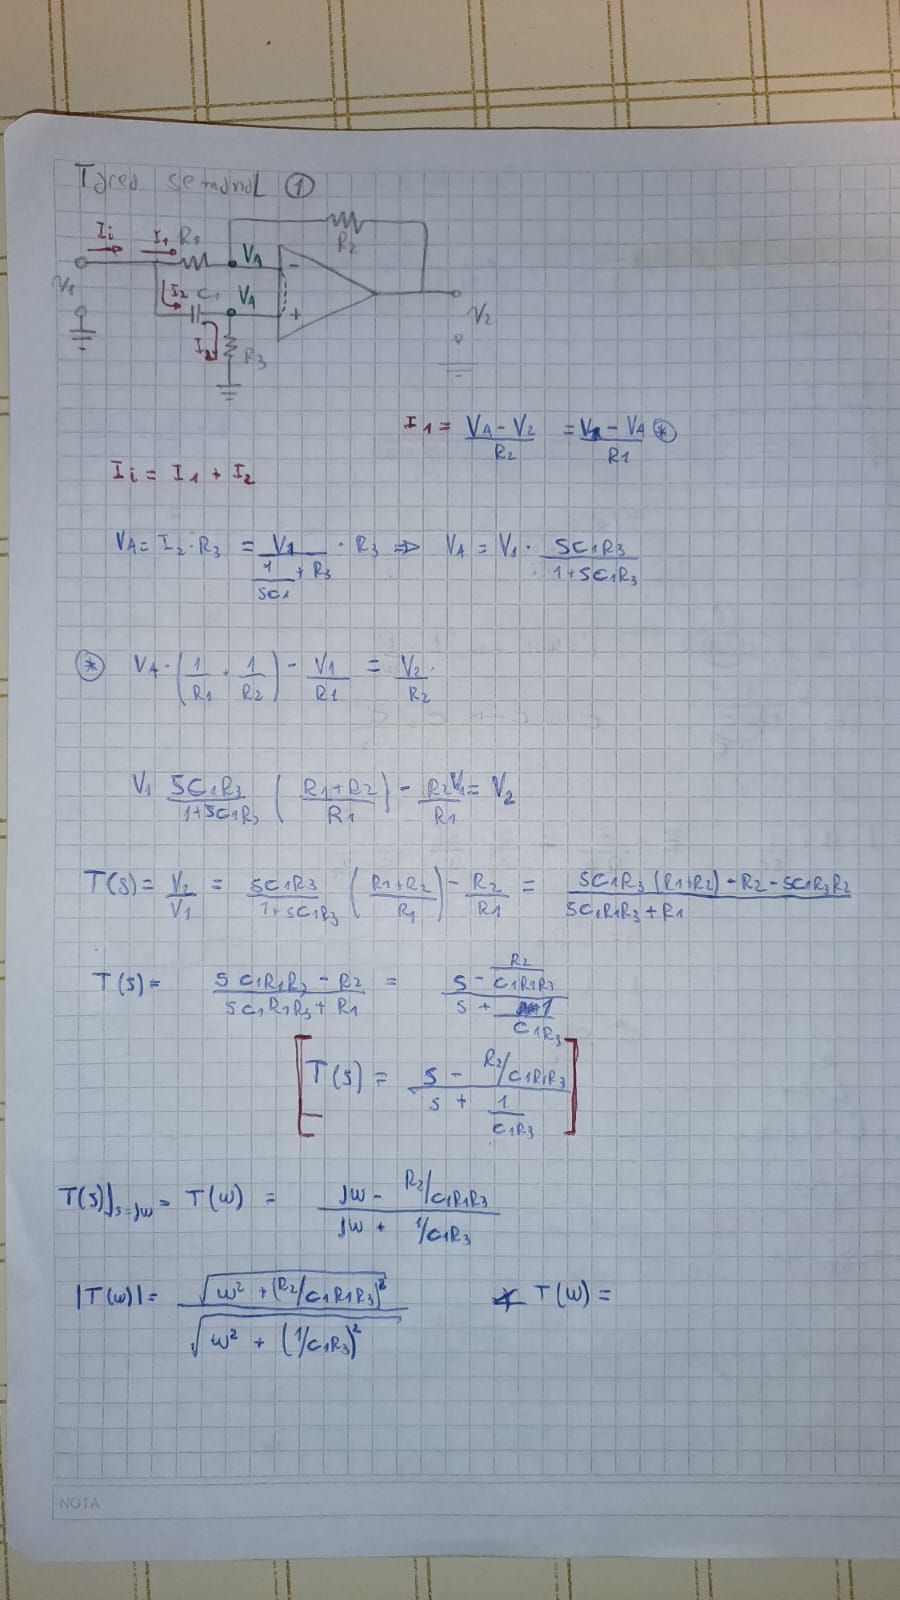 Tarea semanal ①
Ii I1 R1 VA R2
V1 I2 C1 VA - + V2
I2 R3
I1 = (VA - V2)/R2 = (V1 - VA)/R1 ⊛
Ii = I1 + I2
VA = I2 · R3 = V1/(1/SC1 + R3) · R3 => VA = V1 · SC1R3/(1+SC1R3)
⊛ VA · (1/R1 + 1/R2) - V1/R1 = V2/R2
V1 SC1R3/(1+SC1R3) ((R1+R2)/R1) - R2V1/R1 = V2
T(s) = V2/V1 = SC1R3/(1+SC1R3) ((R1+R2)/R1) - R2/R1 = (SC1R3 (R1+R2) - R2 - SC1R3R2)/(SC1R1R3 + R1)
T(s) = (S C1R1R3 - R2)/(S C1R1R3 + R1) = (S - R2/C1R1R3)/(S + 1/C1R3)
[T(s) = (S - R2/C1R1R3)/(S + 1/C1R3)]
T(s)]s=jw = T(w) = (jw - R2/C1R1R3)/(jw + 1/C1R3)
|T(w)| = √(w² + (R2/C1R1R3)²)/√(w² + (1/C1R3)²) ∡ T(w) =
NOTA